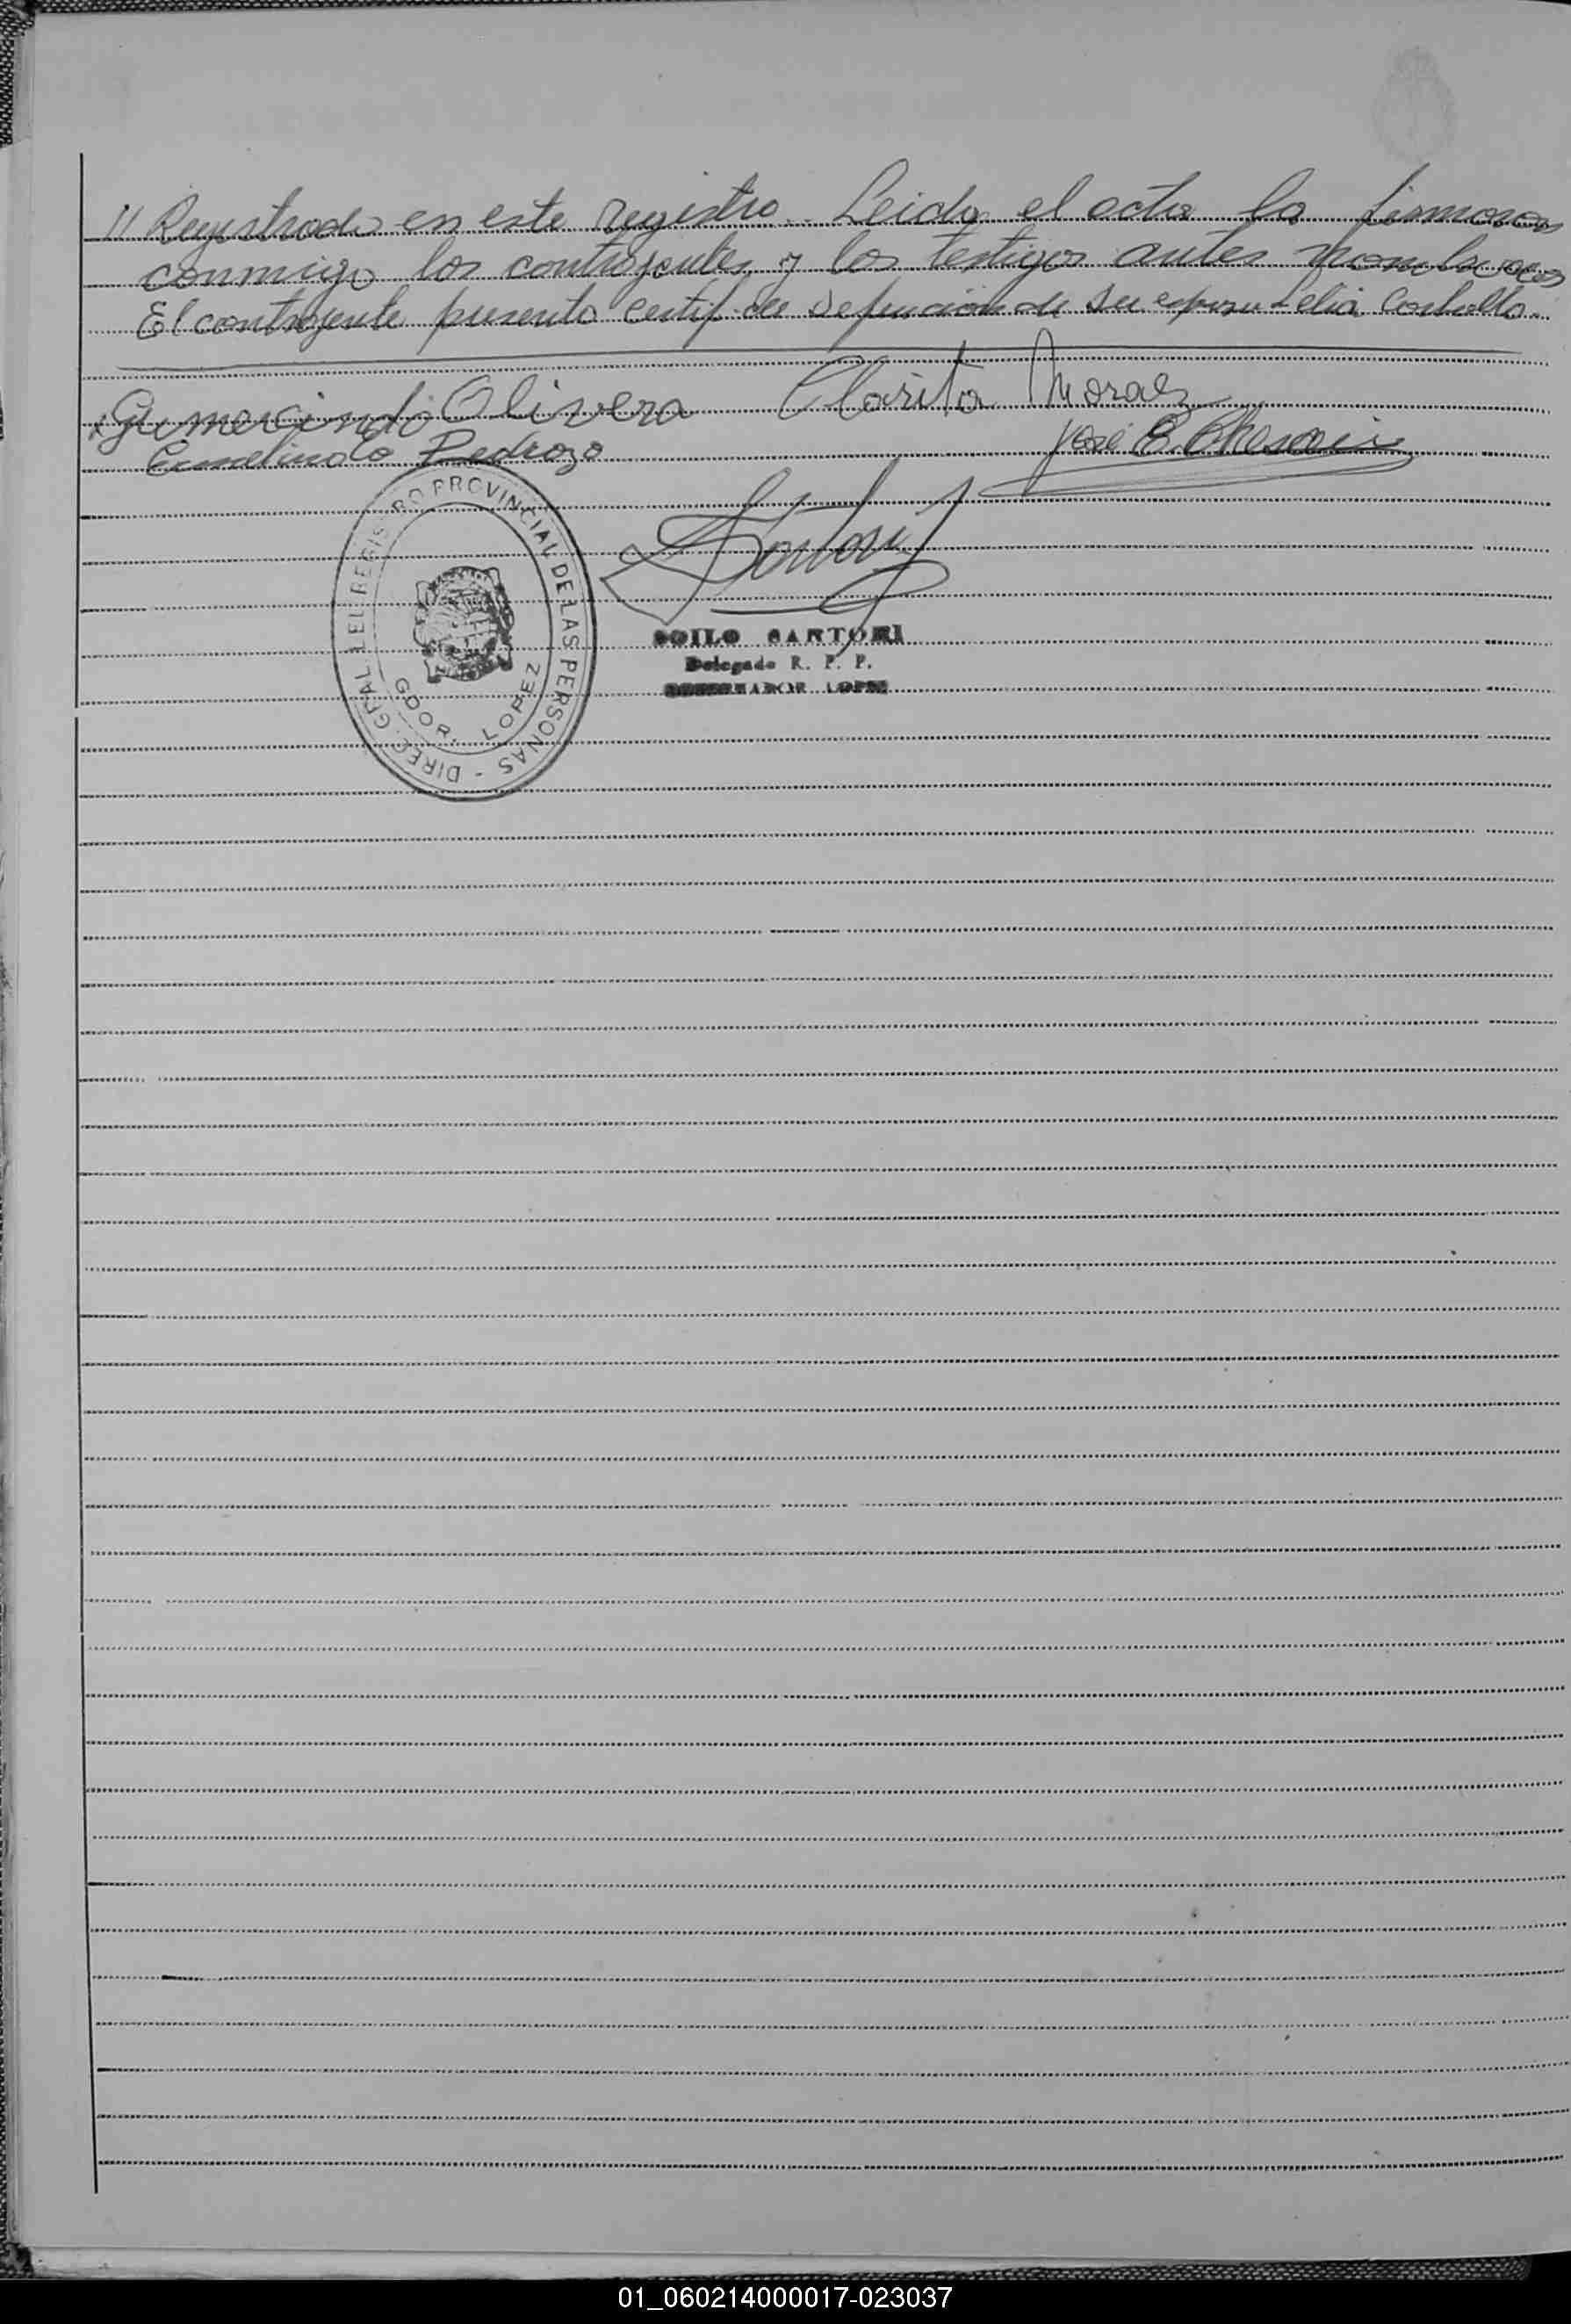 // Registrada en este registro. Leida el acta la firmaron
conmigo los contrayentes y los testigos antes nombrados
El contrayente presento certif. de defunción de su esposa Lelia
Gumercindo Olivera Clarita Moraez
Ermelindo Pedrozo José E.
DIREC. GRAL DEL REGISTRO PROVINCIAL DE LAS PERSONAS -
GDOR. LOPEZ
Sartori
SOILO SARTORI
Delegado R. P. P.
GOBERNADOR LOPEZ
01_060214000017-023037